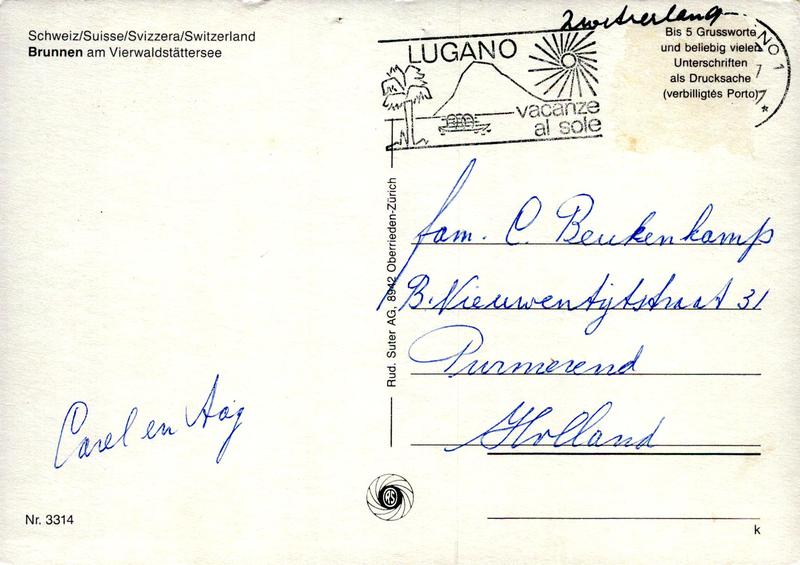 Schweiz/Suisse/Svizzera/Switzerland
Brunnen am Vierwaldstättersee
Zwitzerland
LUGANO
vacanze
al sole
NO 1
Bis 5 Grussworte
und beliebig vielen
Unterschriften
als Drucksache
(verbilligtes Porto)
Rud. Suter AG, 8942 Oberrieden-Zürich
fam. C. Beukenkamp
B. Nieuwentijtstraat 31
Purmerend
Holland
Carel en Aag
Nr. 3314
k